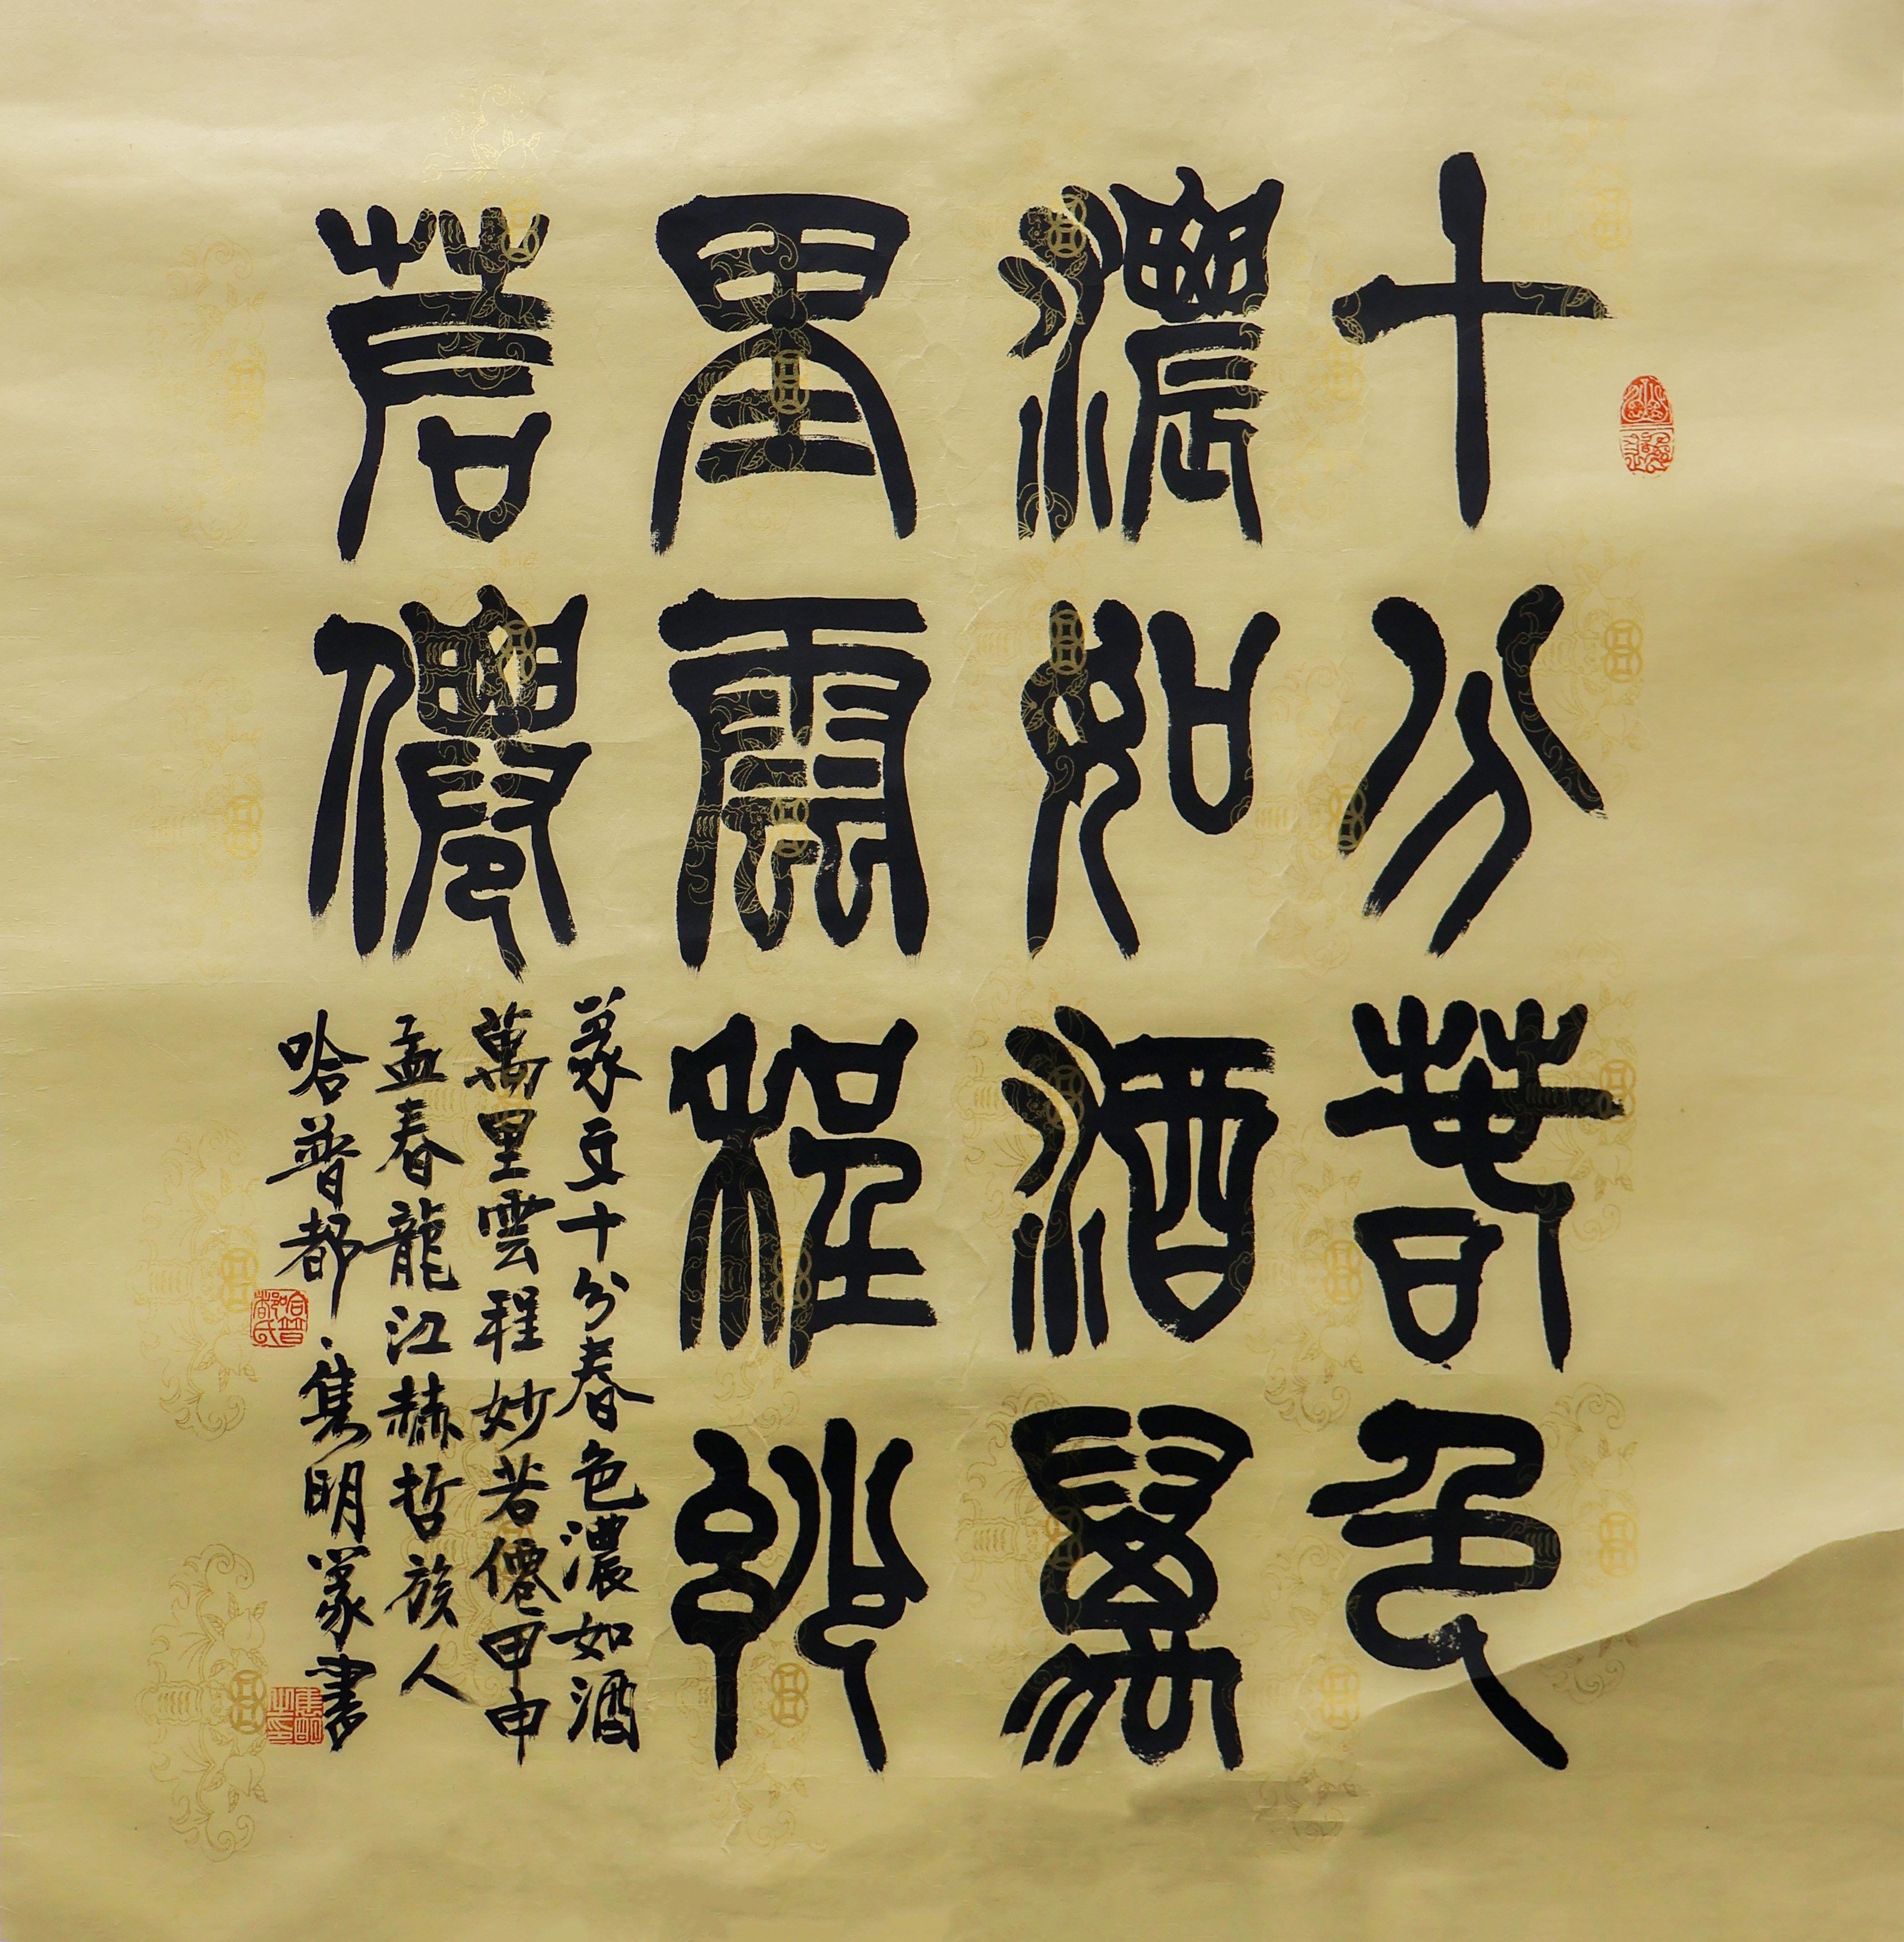 十分春色
濃如酒萬
里雲程妙
若僊
篆文十分春色濃如酒
萬里雲程妙若僊甲申
孟春龍江赫哲族人
哈普都·隽明篆書
哈普都氏